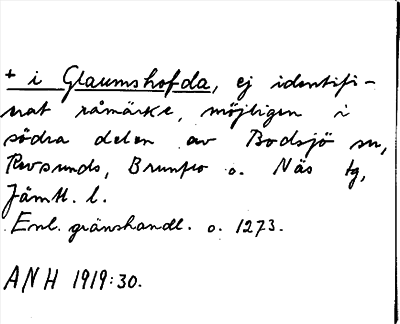 + i Glaumshofda, ej identifi-
erat råmärke, möjligen i
södra delen av Bodsjö sn,
Revsunds, Brunflo o. Näs tg,
Jämtl. l.
Enl. gränshandl. o. 1273.
ANH 1919:30.